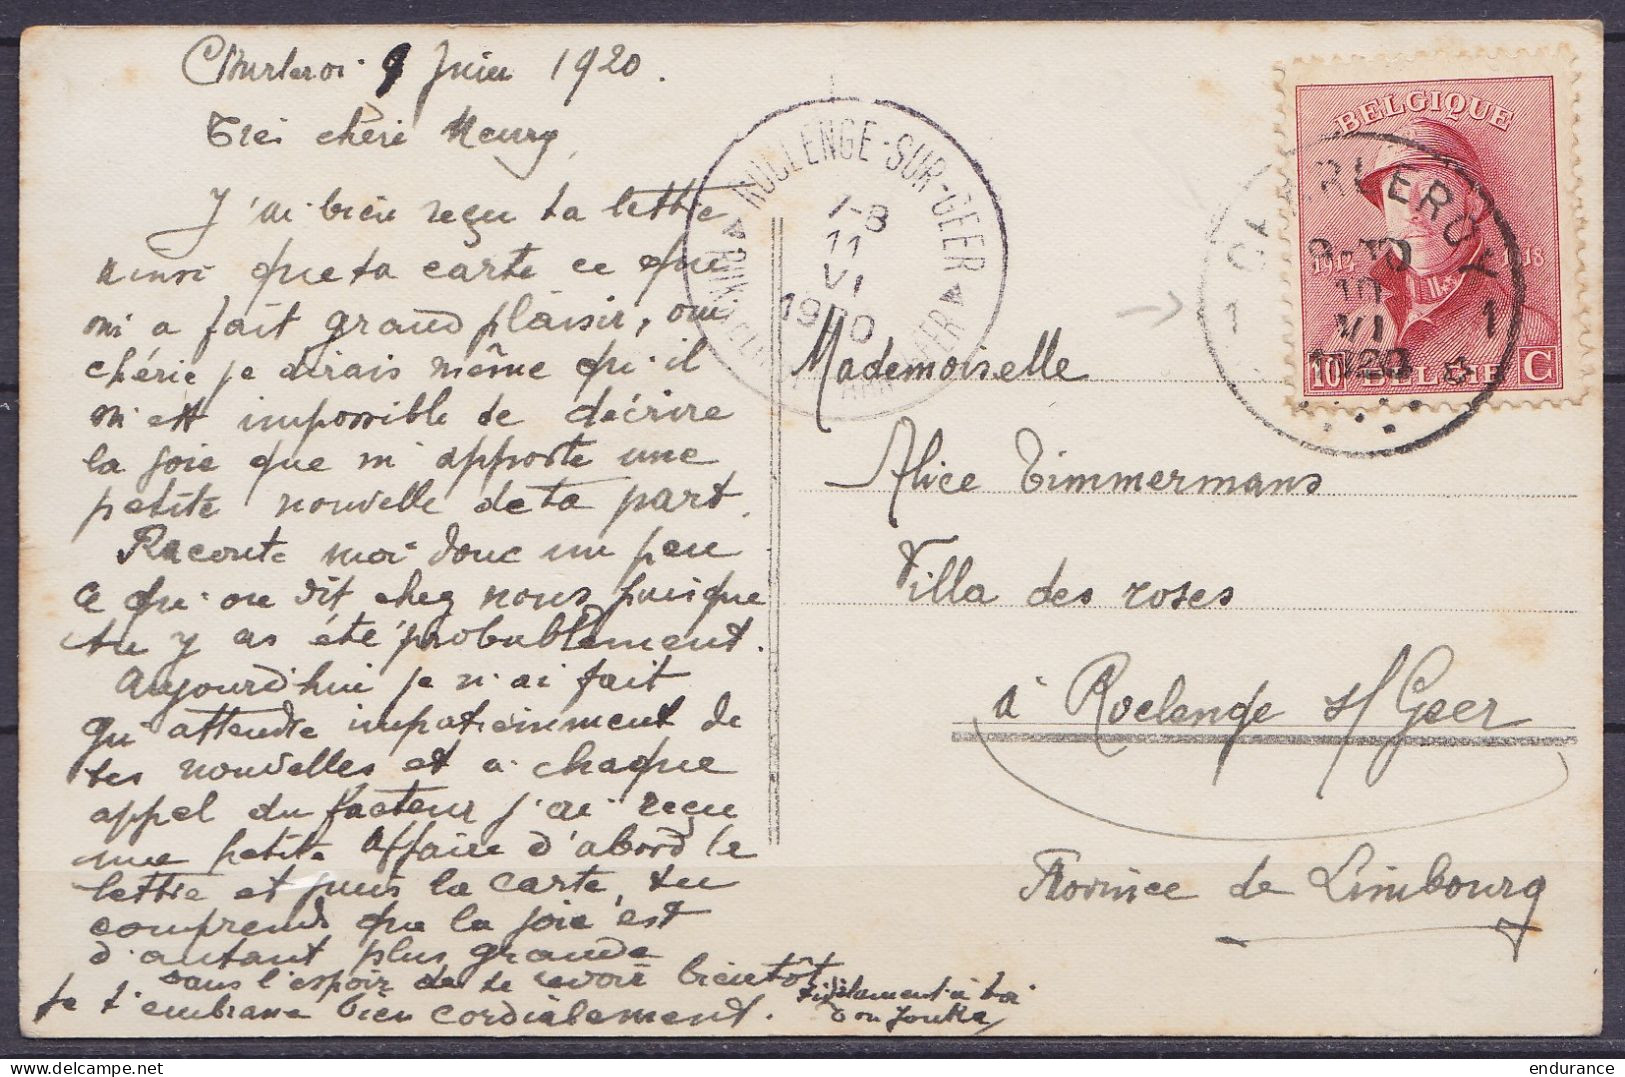 Charleroi 9 Juin 1920.
Trei chéri Meury,
J'ai bien reçu ta lettre
ainsi que ta carte ce que
m'a fait grand plaisir, oui
chérie je dirais même qu'il
m'est impossible de décrire
la joie que m'apporte une
petite nouvelle de ta part.
Raconte moi donc un peu
ce qu'on dit chez nous puisque
tu y as été probablement.
Aujourd'hui je n'ai fait
qu'attendre impatiemment de
tes nouvelles et a chaque
appel du facteur j'ai reçu
une petite affaire d'abord la
lettre et puis la carte, tu
comprends que la joie est
d'autant plus grande
dans l'espoir de te revoir bientôt
je t'embrasse bien cordialement.
fidèlement à toi
ton
ROCLENGE-SUR-GEER
7-8
11
VI
1920
BELGIQUE
1914 1918
10 BELGIE C
CHARLEROY
1 1
10
VI
1920
Mademoiselle
Alice Timmermans
Villa des roses
à Roclenge s/ Geer
Province de Limbourg
endurance